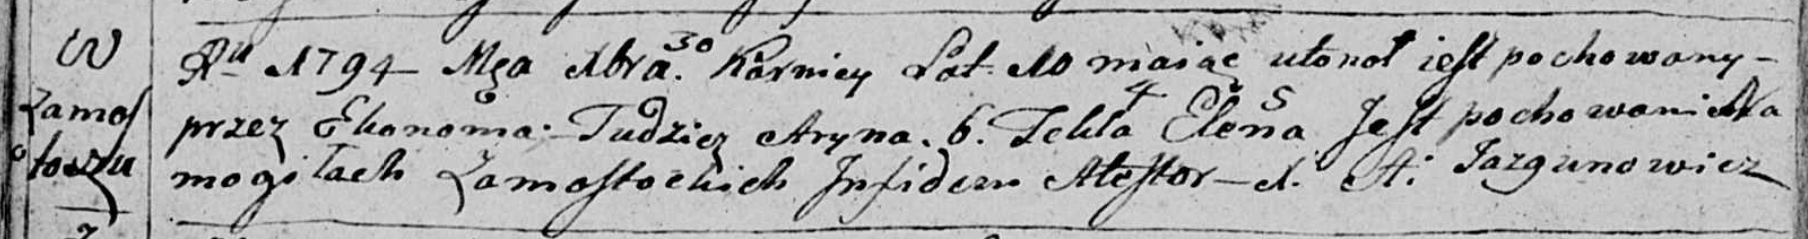 W
Zamos
toczu
Ru 1794 Mca Abra. 30 Karniey Lat 10 maiąc utonoł iest pochowany -
przez Ekonoma. Tudziez Aryna. 6. Tekla 4 Elena 5 Jest pochowani Na
mogiłach Zamostockich In fidem Atestor - X. A: Jazgunowicz